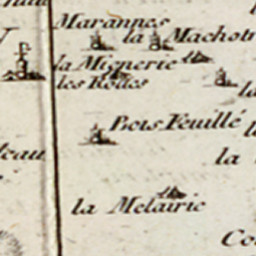 Marannes
la Machotr
la Mignerie
les Roues
la
Bois Feuillé
la
eau
la Melairie
Co